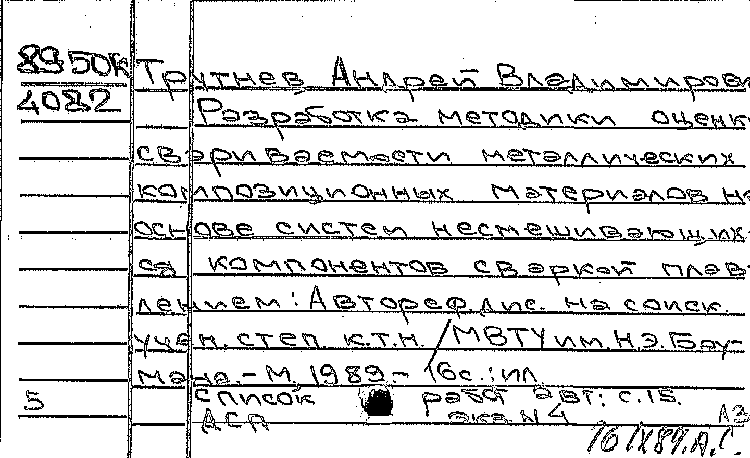 8950к Трутнев Андрей Владимирови
4082 Разработка методики оценки
свариваемости металлических
композиционных материалов на
основе систем несмешивающих-
ся компонентов сваркой плав-
лением: Автореф. дис. на соиск.
учен. степ. к.т.н. / МВТУ им. Н.Э. Бау-
мана. - М. 1989. - 16с.: ил
5 Список работ авт: с.15.
ДСП экз. N4 АЗ